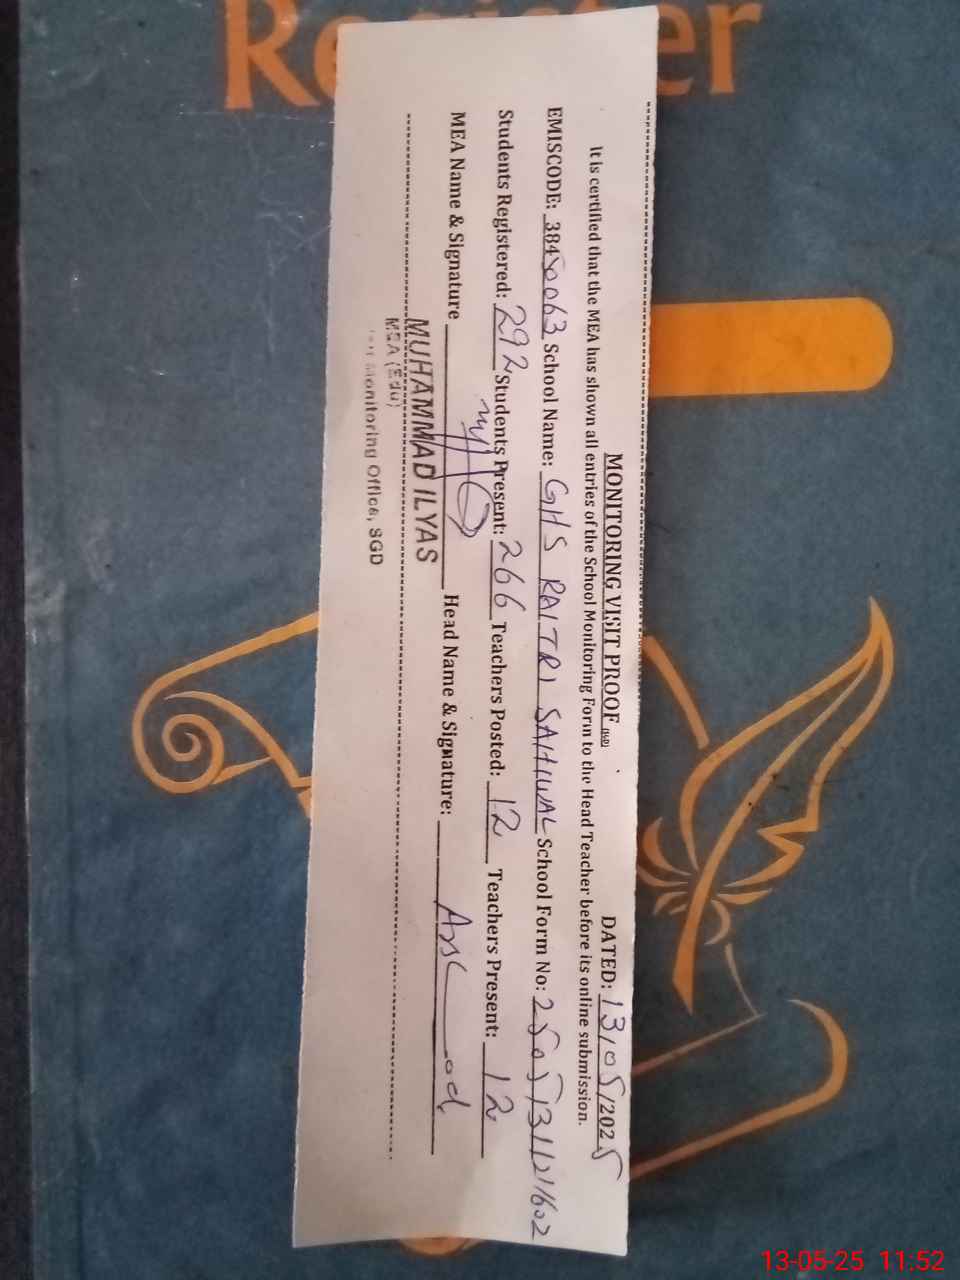 Register
MONITORING VISIT PROOF (SGD) DATED: 13/05/2025
It is certified that the MEA has shown all entries of the School Monitoring Form to the Head Teacher before its online submission.
EMISCODE: 38450063 School Name: GHS RAITRI SAHIWAL School Form No:
Students Registered: 292 Students Present: 266 Teachers Posted: 12 Teachers Present: 12
MEA Name & Signature Head Name & Signature:
MUHAMMAD ILYAS
MEA (Edu)
Monitoring Office, SGD
13-05-25 11:52